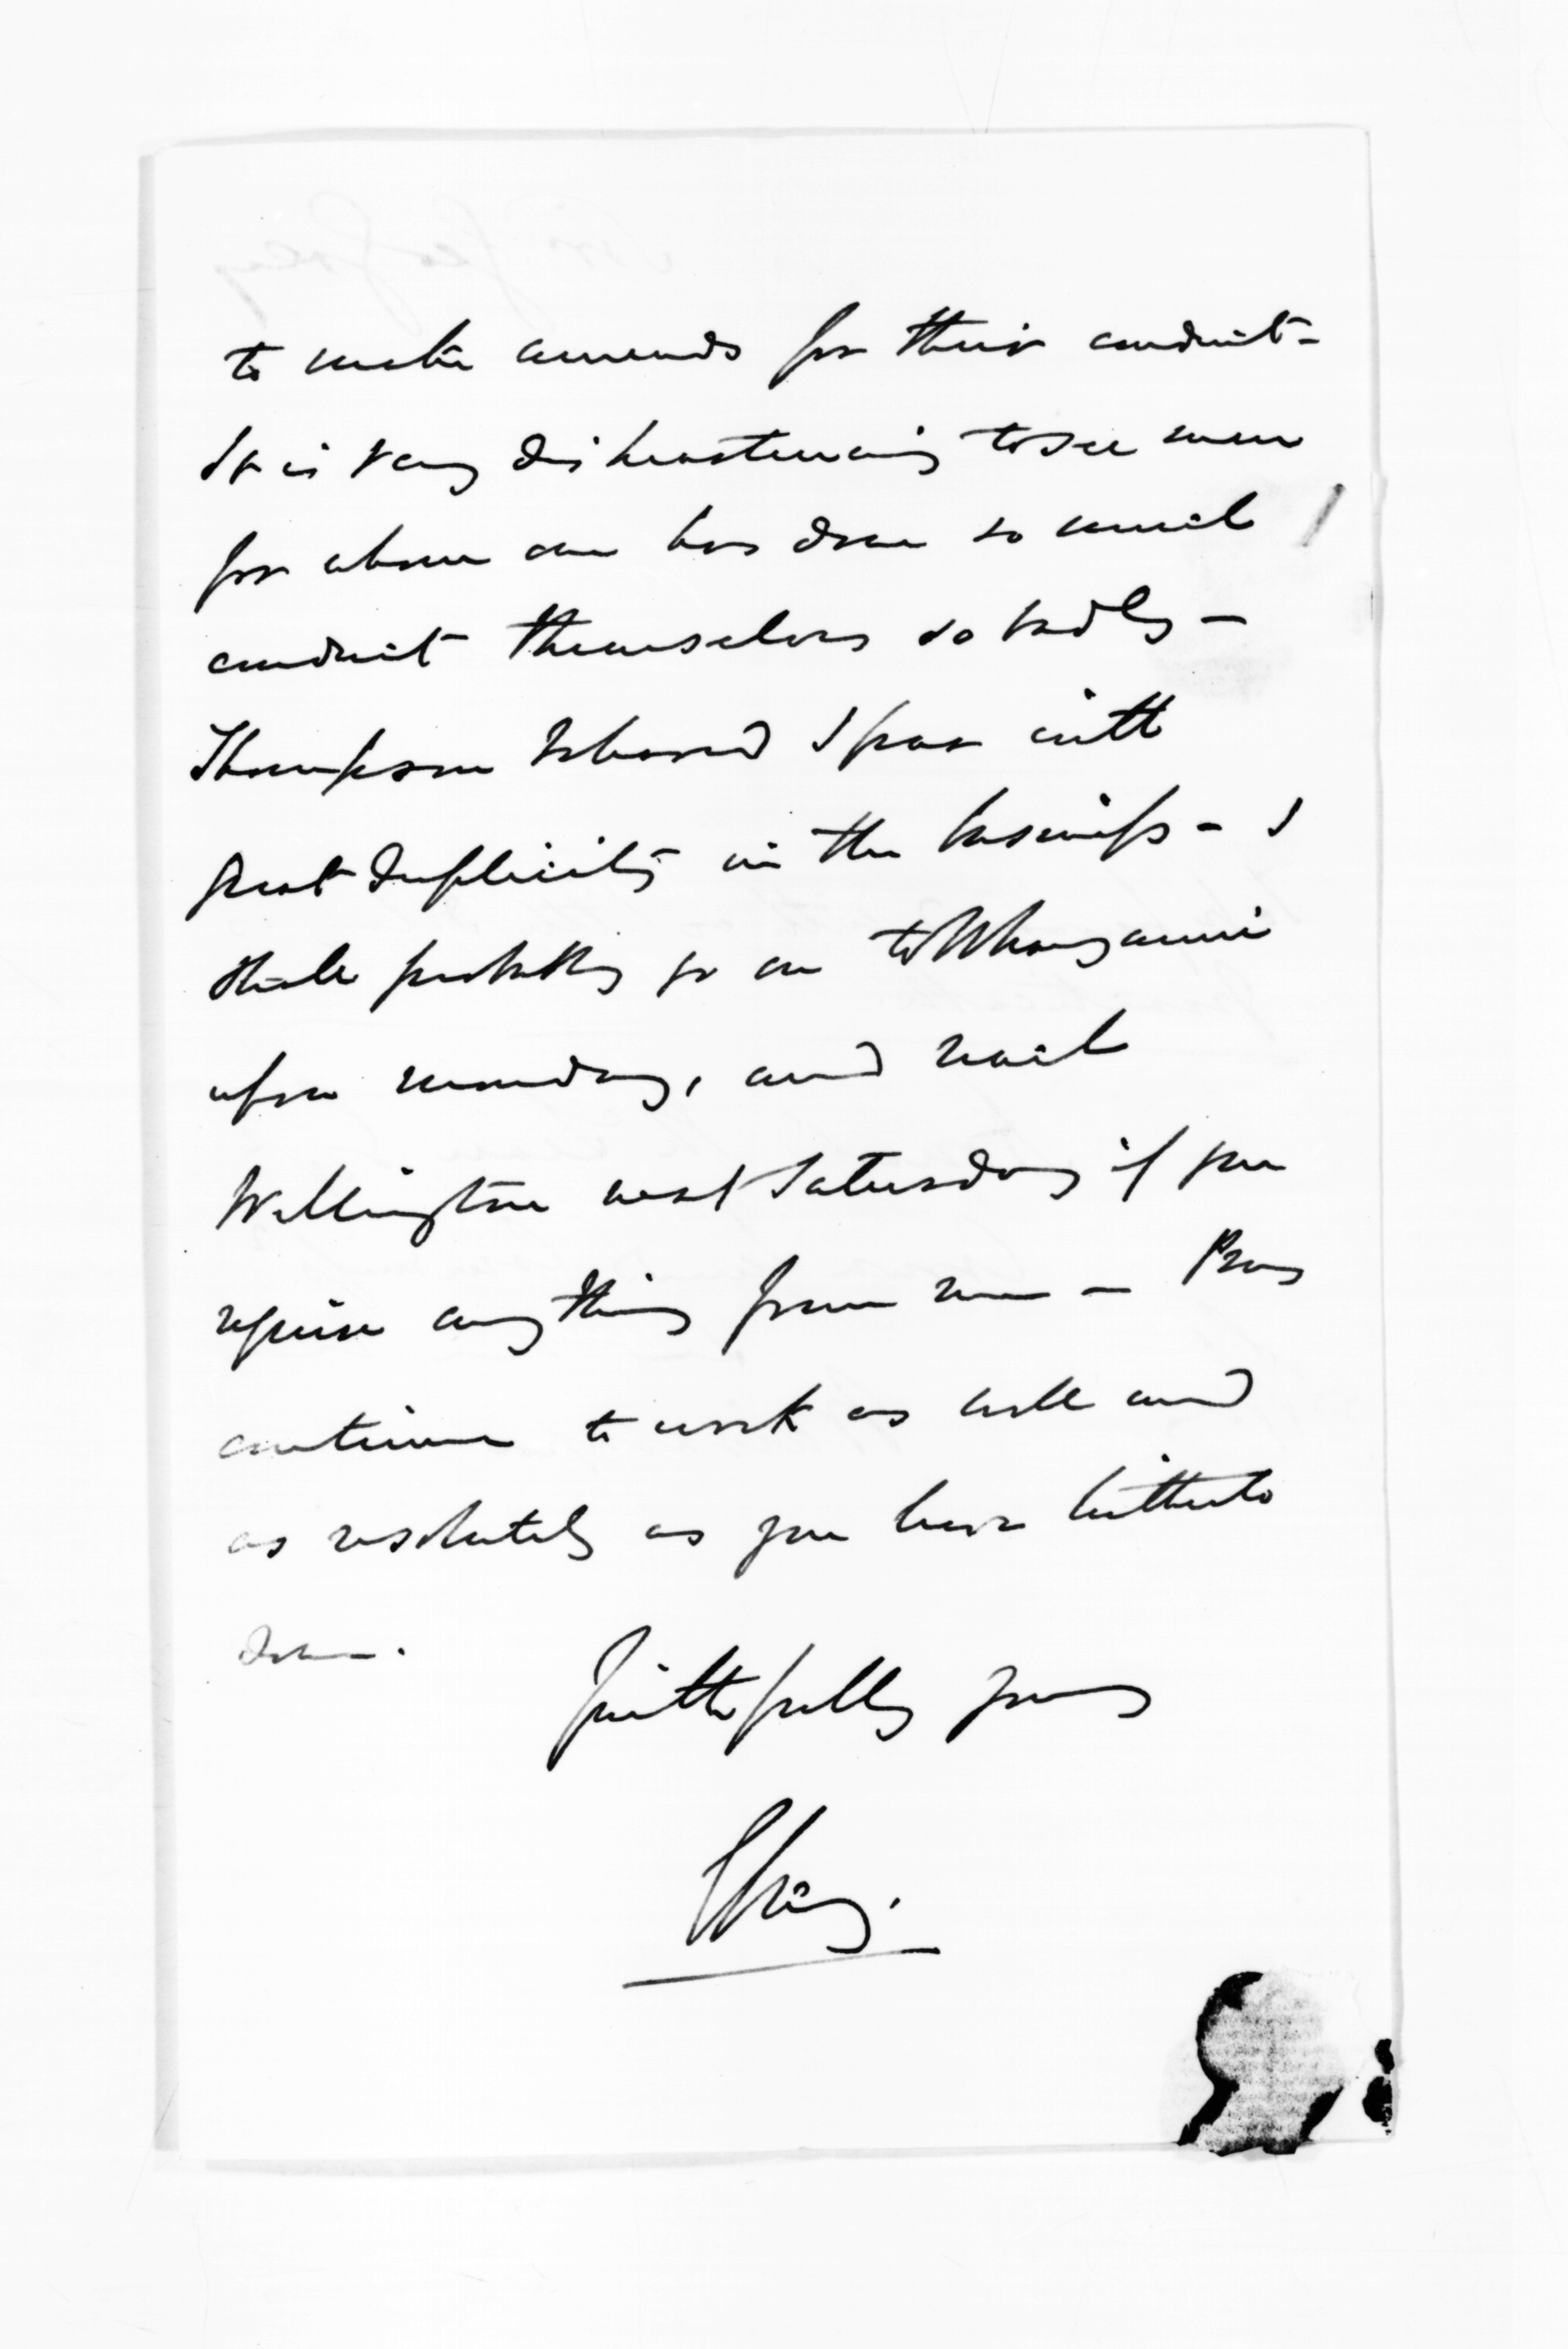 to make amends for their conduct -
It is very disheartening to see men
for whom one has done so much
conduct themselves so badly -
Thompson behaved I fear with
great duplicity in the business - I
shall probably go on to Whanganui
upon monday, and
Wellington next Saturday if you
require anything from me - Pray
continue to work as well and
as resolutely as you have hitherto
done.
Faithfully yours
GGrey.